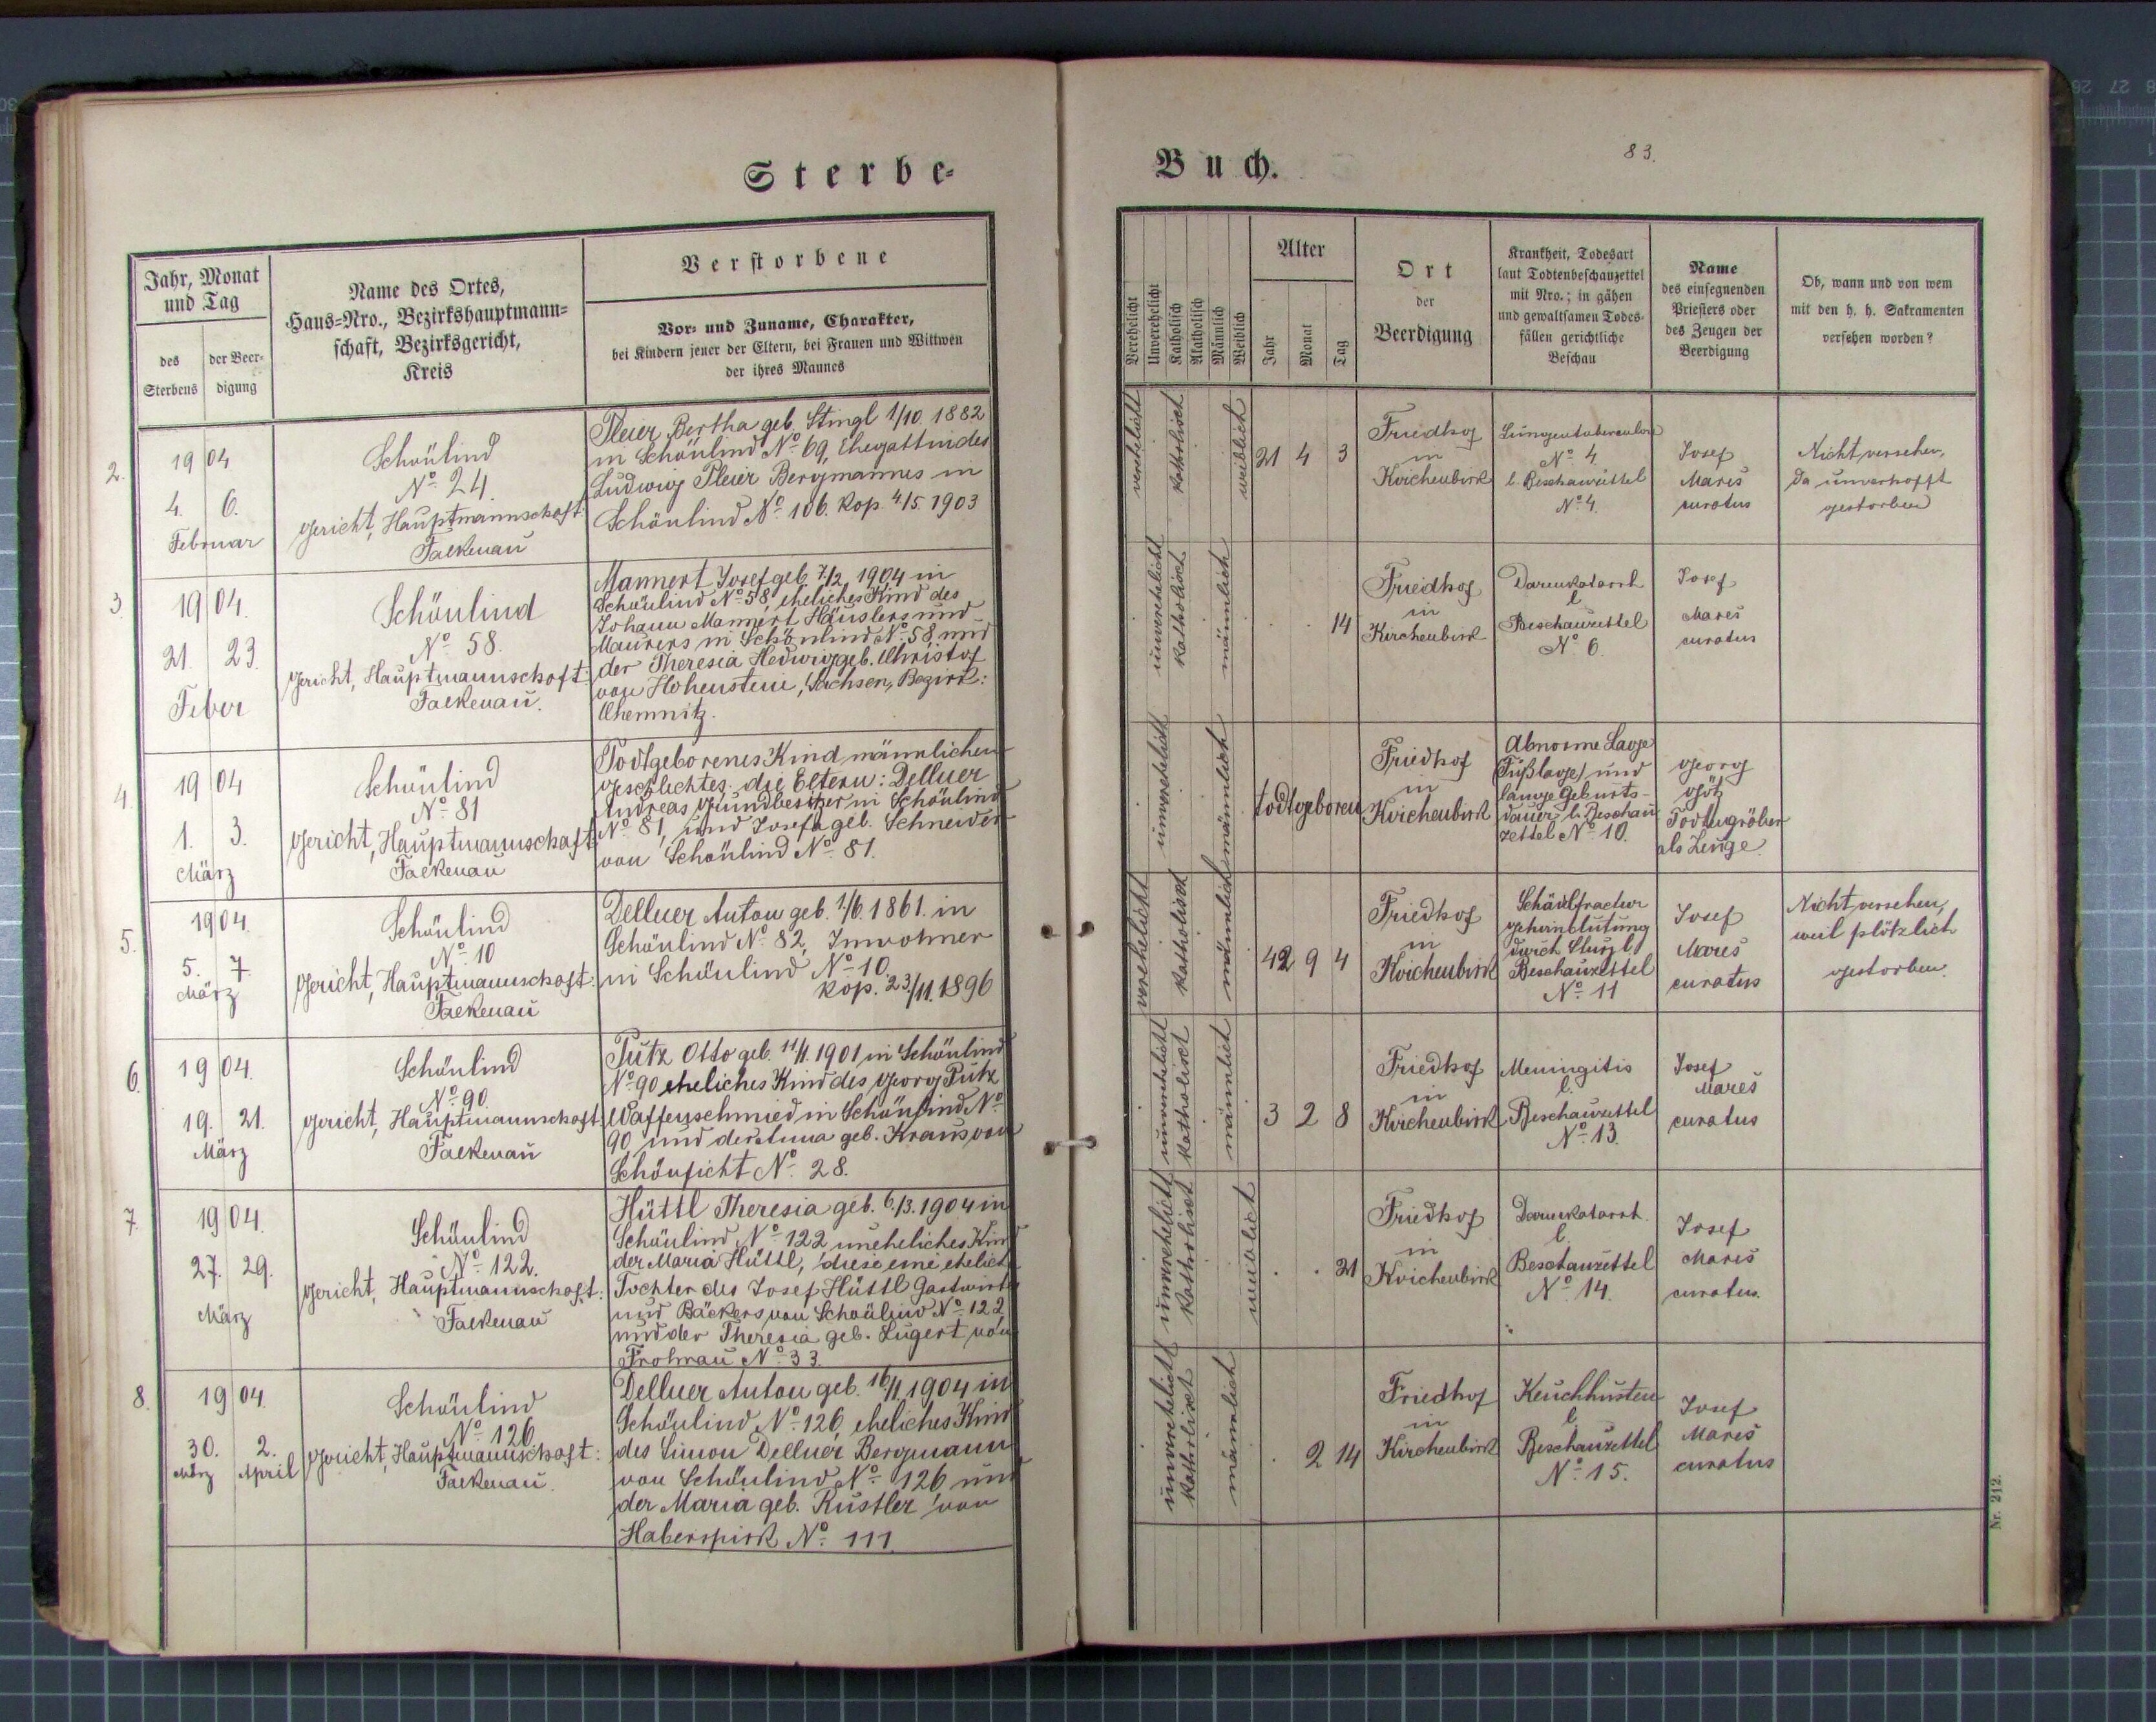 Sterbe-
Buch.
83.
Jahr, Monat
und Tag
des
Sterbens
der Beer-
digung
Name des Ortes,
Haus-Nro., Bezirkshauptmann-
schaft, Bezirksgericht,
Kreis
Verstorbene
Vor- und Zuname, Charakter,
bei Kindern jener der Eltern, bei Frauen und Wittwen
der ihres Mannes
Verehelicht
Unverehelicht
Katholisch
Akatholisch
Männlich
Weiblich
Alter
Jahr
Monat
Tag
Ort
der
Beerdigung
Krankheit, Todesart
laut Todtenbeschauzettel
mit Nro.; in gähen
und gewaltsamen Todes-
fällen gerichtliche
Beschau
Name
des einsegnenden
Priesters oder
des Zeugen der
Beerdigung
Ob, wann und von wem
mit den h. h. Sakramenten
versehen worden?
2.
1904
4. 6.
Februar
Schönlind
No. 24.
Gericht, Hauptmannschaft:
Falkenau
Pleier Bertha geb. Stingl 1/10 1882
in Schönlind No. 69, Ehegattin des
Ludwig Pleier Bergmannes in
Schönlind No. 106. Kop. 4/5. 1903
verehelicht
katholisch
weiblich
21 4 3
Friedhof
in
Kirchenbirk
Lungentuberculose
No. 4.
l. Beschauzettel
No. 4.
Josef
Mareš
curatus
Nicht versehen,
da unverhofft
gestorben
3.
1904.
21. 23.
Feber
Schönlind
No. 58.
Gericht, Hauptmannschaft:
Falkenau.
Mannert Josef geb. 7./2. 1904 in
Schönlind No. 58, eheliches Kind des
Johann Mannert Häuslers und
Maurers in Schönlind No. 58 und
der Theresia Hedwig geb. Christof
von Hohenstein, Sachsen, Bezirk:
Chemnitz.
unverehelicht
katholisch
männlich
. . 14
Friedhof
in
Kirchenbirk
Darmkatarrh
l.
Beschauzettel
No. 6.
Josef
Mareš
curatus
4.
1904
1. 3.
März
Schönlind
No. 81
Gericht, Hauptmannschaft:
Falkenau
Todtgeborenes Kind männlichen
Geschlechtes. die Eltern: Dellner
Andreas Grundbesitzer in Schönlind
No. 81, und Josefa geb. Schneider
von Schönlind No. 81.
unverehelicht
männlich
todtgeboren
Friedhof
in
Kirchenbirk
Abnorme Lage
(Fußlage) und
lange Geburts-
dauer l. Beschau
zettel No. 10.
Georg
Götz
Todtengräber
als Zeuge.
5.
1904.
5. 7.
März
Schönlind
No. 10
Gericht, Hauptmannschaft:
Falkenau
Dellner Anton geb. 1./6. 1861. in
Schönlind No. 82, Inwohner
in Schönlind No. 10.
Kop. 23./11. 1896
verehelicht
katholisch
männlich
42 9 4
Friedhof
in
Kirchenbirk
Schädelfractur
Gehirnblutung
durch Sturz l.
Beschauzettel
No. 11
Josef
Mareš
curatus
Nicht versehen,
weil plötzlich
gestorben.
6.
1904.
19. 21.
März
Schönlind
No. 90
Gericht, Hauptmannschaft
Falkenau
Putz Otto geb. 11/1. 1901 in Schönlind
No. 90 eheliches Kind des Georg Putz
Waffenschmied in Schönlind No.
90 und der Anna geb. Kraus von
Schönficht No. 28.
unverehelicht
katholisch
männlich
3 2 8
Friedhof
in
Kirchenbirk
Meningitis
l.
Beschauzettel
No. 13.
Josef
Mareš
curatus
7.
1904.
27. 29.
März
Schönlind
No. 122.
Gericht, Hauptmannschaft:
Falkenau
Hüttl Theresia geb. 6./3. 1904 in
Schönlind No. 122 uneheliches Kind
der Maria Hüttl, diese eine ehelich
Tochter des Josef Hüttl Gastwirts
und Bäckers von Schönlind No. 122
und der Theresia geb. Lugert von
Frohnau No. 33.
unverehelicht
katholisch
weiblich
. . 21
Friedhof
in
Kirchenbirk
Darmkatarrh.
l.
Beschauzettel
No. 14.
Josef
Mareš
curatus.
8.
1904.
30. 2.
März April
Schönlind
No. 126
Gericht, Hauptmannschaft:
Falkenau.
Dellner Anton geb. 16/1 1904 in
Schönlind No. 126, eheliches Kind
des Simon Dellner Bergmann
von Schönlind No. 126 und
der Maria geb. Rustler von
Haberspirk No. 111.
unverehelicht
katholisch
männlich
. 2 14
Friedhof
in
Kirchenbirk
Keuchhusten
l.
Beschauzettel
No. 15.
Josef
Mareš
curatus
Nr. 212.